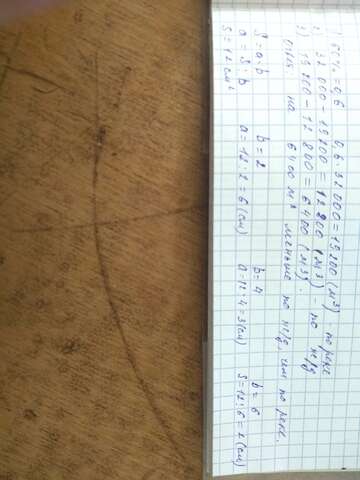 1) 60% = 0,6   0,6·32000=19200 (м³) по реке
2) 32 000 - 19200 = 12800 (м³) - по ж/д
3) 19 200 - 12 800 = 6400 (м³).
Ответ: на 6400 м³ меньше по ж/д, чем по реке.
S=a·b   b=2   b=4   b=6
a=S:b   a=12:2=6(см)   a=12:4=3(см)   S=12:6=2(см)
S=12см²